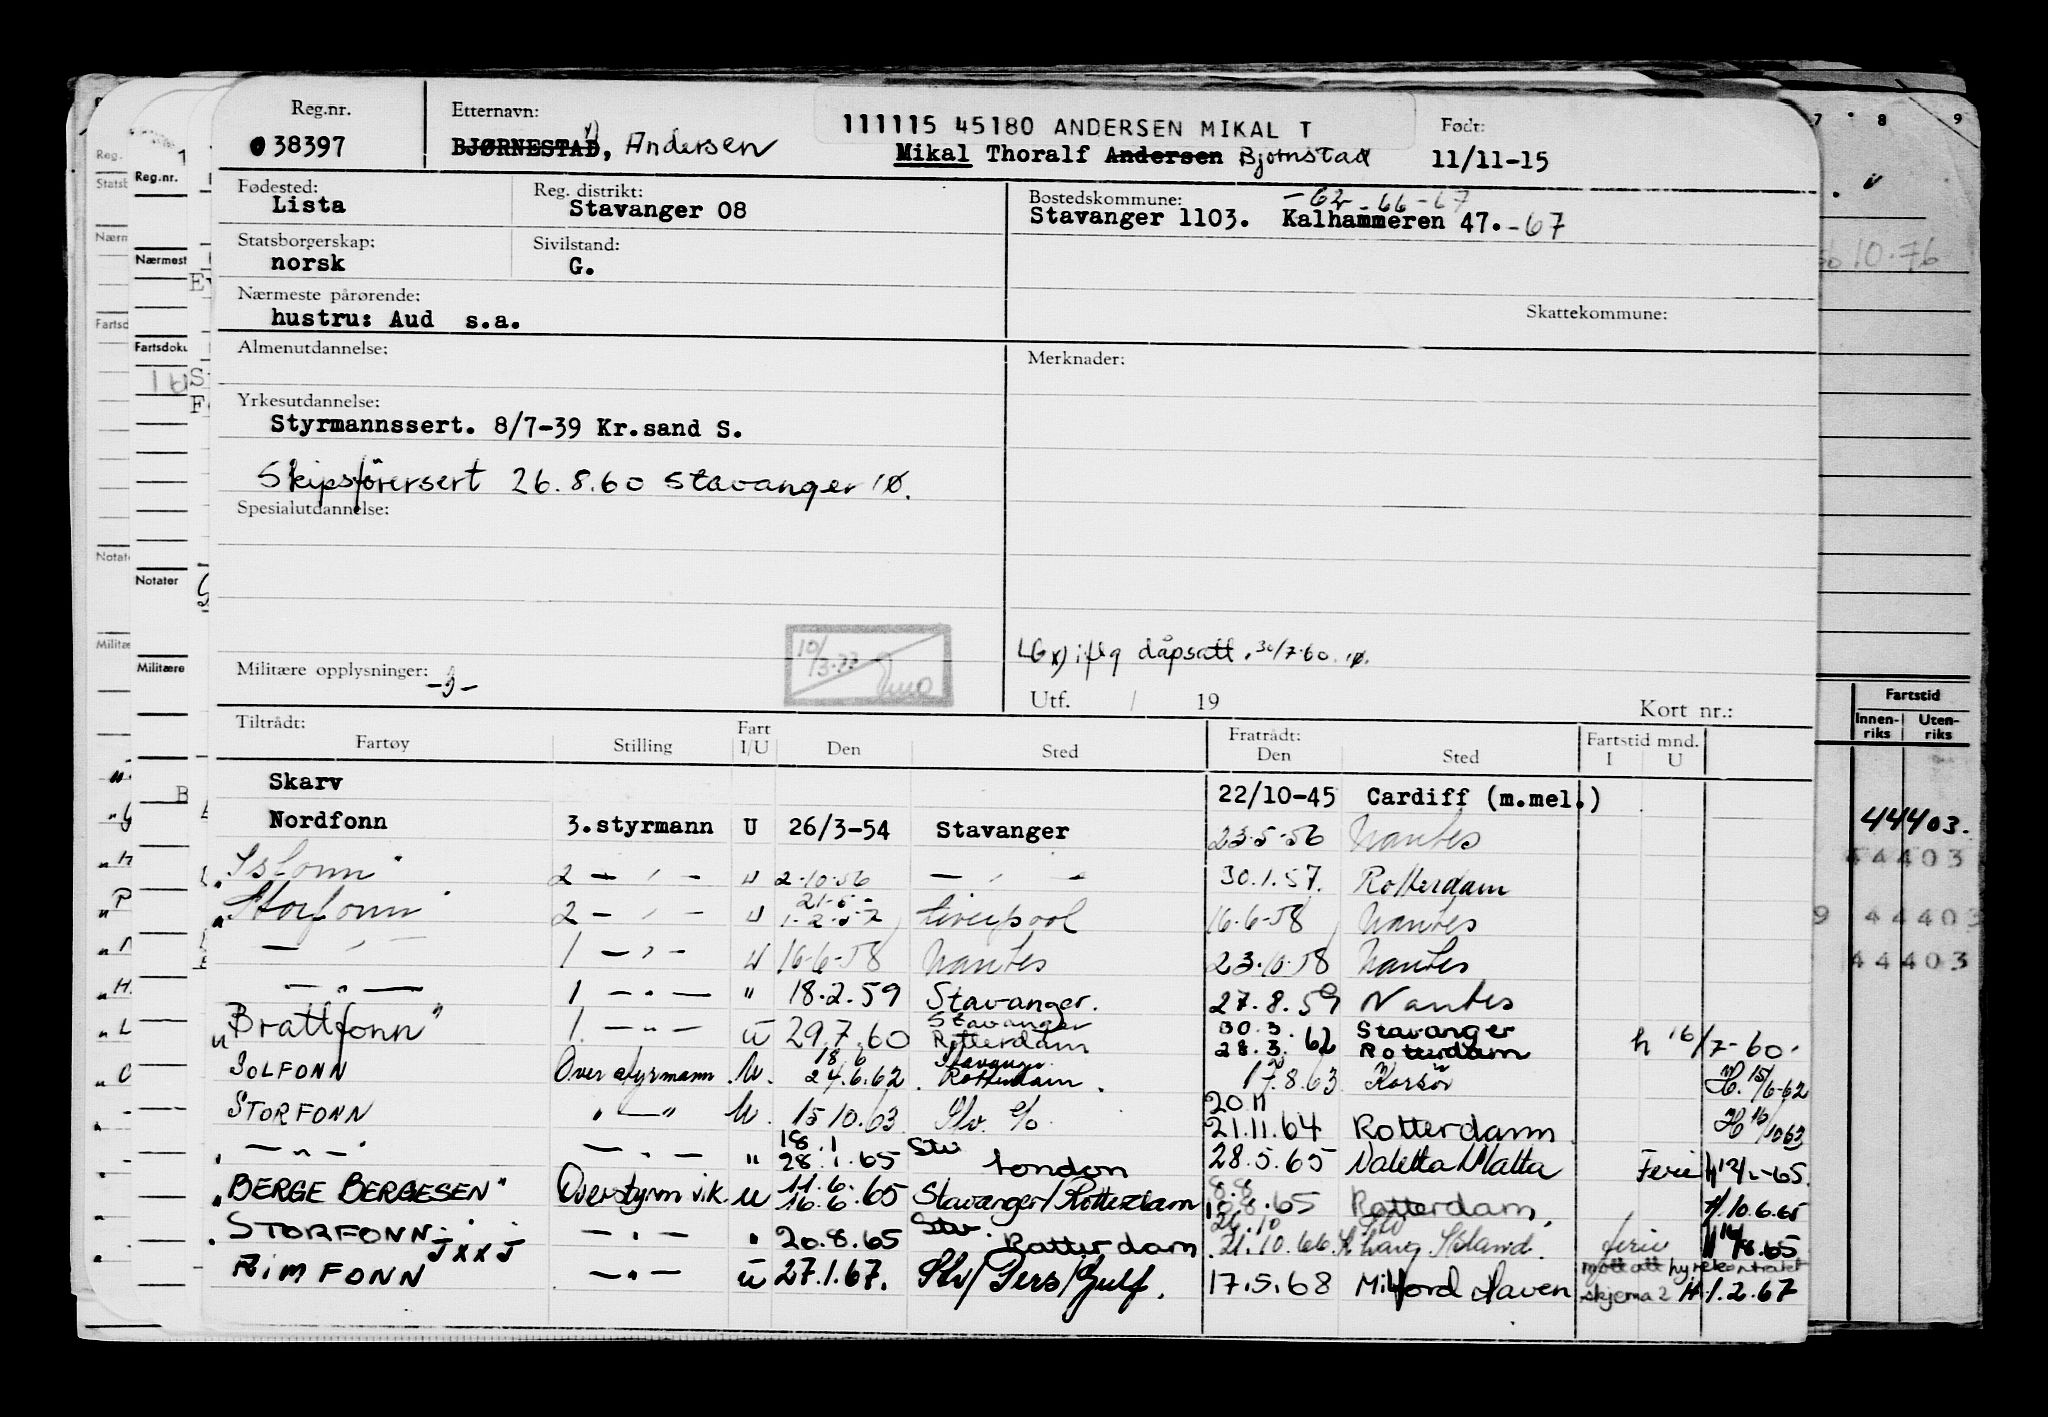 Reg.nr. Etternavn: 111115 45180 ANDERSEN MIKAL T Født:
38397 BJØRNESTAD, Andersen Mikal Thoralf Andersen Bjørnstad 11/11-15
Fødested: Reg. distrikt: Bostedskommune: -62 -66 -67
Lista Stavanger 08 Stavanger 1103. Kalhammeren 47. -67
Statsborgerskap: Sivilstand:
norsk G.
Nærmeste pårørende: Skattekommune:
hustru: Aud s.a.
Almenutdannelse: Merknader:
Yrkesutdannelse:
Styrmannssert. 8/7-39 Kr.sand S.
Skipsförersert 26.8.60 Stavanger
Spesialutdannelse:
dåpsatt. 30/7-60
Militære opplysninger: 10/3-77
Utf. / 19 Kort nr.:
Tiltrådt: Fratrådt: Fartstid mnd.
Fartøy Stilling Fart I/U Den Sted Den Sted I U
Skarv 22/10-45 Cardiff (m.mel.)
Nordfonn 3.styrmann U 26/3-54 Stavanger 23-5-56 Nantes
"Isfonn" 2 — " — U 2-10-56 — " — 30.1.57. Rotterdam
"Storfonn" 2 — " — U 1-2-57 Liverpool 16-6-58 Nantes
— " — 1 — " — U 16-6-58 Nantes 23-10-58 Nantes
— " — 1 — " — " 18.2.59 Stavanger. 27.8.59 Nantes
"Brattfonn" 1. — " — U 29.7.60 Stavanger Rotterdam 30.3. 28.3.62 Stavanger Rotterdam h 16/7-60.
JOLFONN Overstyrmann U. 18.6 24.6.62. Stavanger Rotterdam. 17.8.63 Korsör H. 15/6-62
STORFONN " — " U. 15 10.63 20.11 21.11.64 Rotterdam H 16/10 63
— " — — " — " 18.1 28.1.65 Stv London 28.5.65 Valetta Malta Ferie
"BERGE BERGESEN" Overstyrm vik. U 11.6. 16.6.65 Stavanger/Rotterdam 8.8 10.8.65 Rotterdam. H. 10.6.65
"STORFONN" — " — " 20.8.65 Stv. Rotterdam 21.10.66 ferie
RIMFONN — " — U 27.1.67. Stv/Pers/Gulf. 17.5.68 Milford Haven mott att hyrekontrakt skjema 2 H 1.2.67
Reg.
Reg.nr.
Nærmest
Fartsdoku
Notater
Militære
7 8 9
10.76
Fartstid
Innen-riks Uten-riks
44403.
44403
9 44403
44403